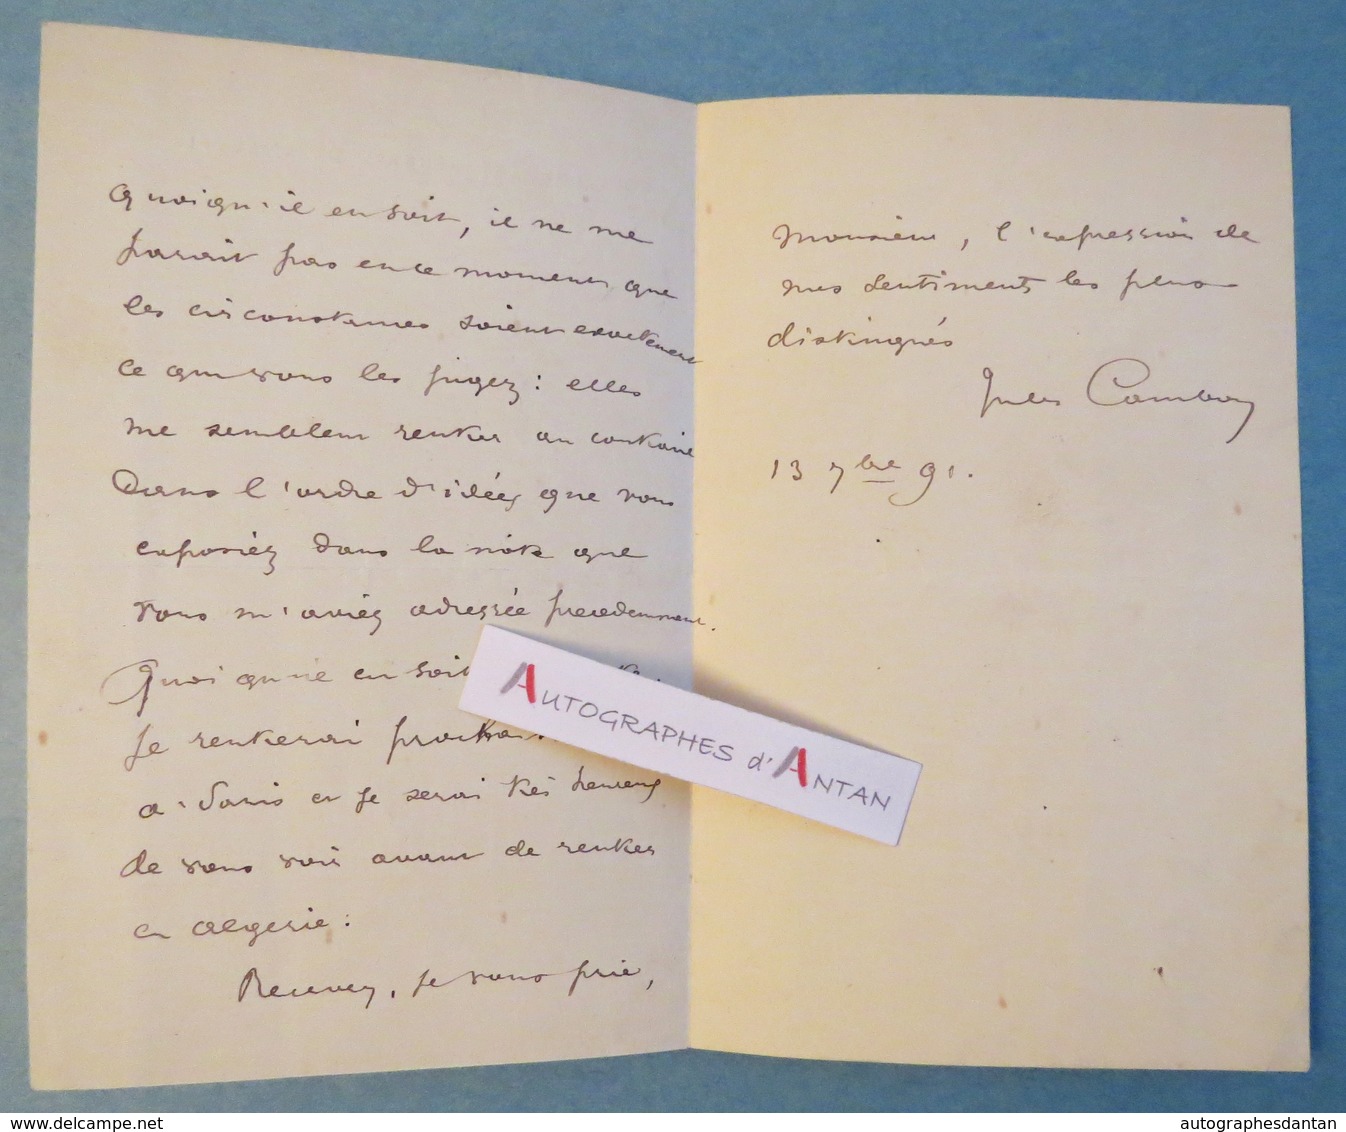 Quoiqu'il en soit, il ne me
parait pas en ce moment que
les circonstances soient exactement
ce que vous les jugez : elles
me semblent rentrer au contraire
dans l'ordre d'idées que vous
exposiez dans la note que
vous m'aviez adressée précedemment.
Quoi qu'il en soit
je rentrerai
à Paris et je serai très heureux
de vous voir avant de rentrer
en Algerie.
Recevez, je vous prie,
Monsieur, l'expression de
mes sentiments les plus
distingués
Jules Cambon
13 7bre 91.
AUTOGRAPHES d'ANTAN
www.delcampe.net
autographesdantan